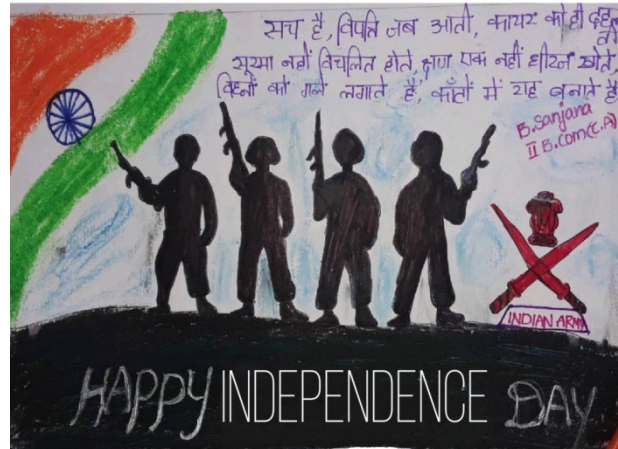 सच है, विपत्ति जब आती, कायर को ही दहलाती
सूरमा नहीं विचलित होते, क्षण एक नहीं धीरज खोते,
विघ्नों को गले लगाते है, काँटों में राह बनाते है
B. Sanjana
II B.Com(C.A)
INDIAN ARMY
HAPPY INDEPENDENCE DAY